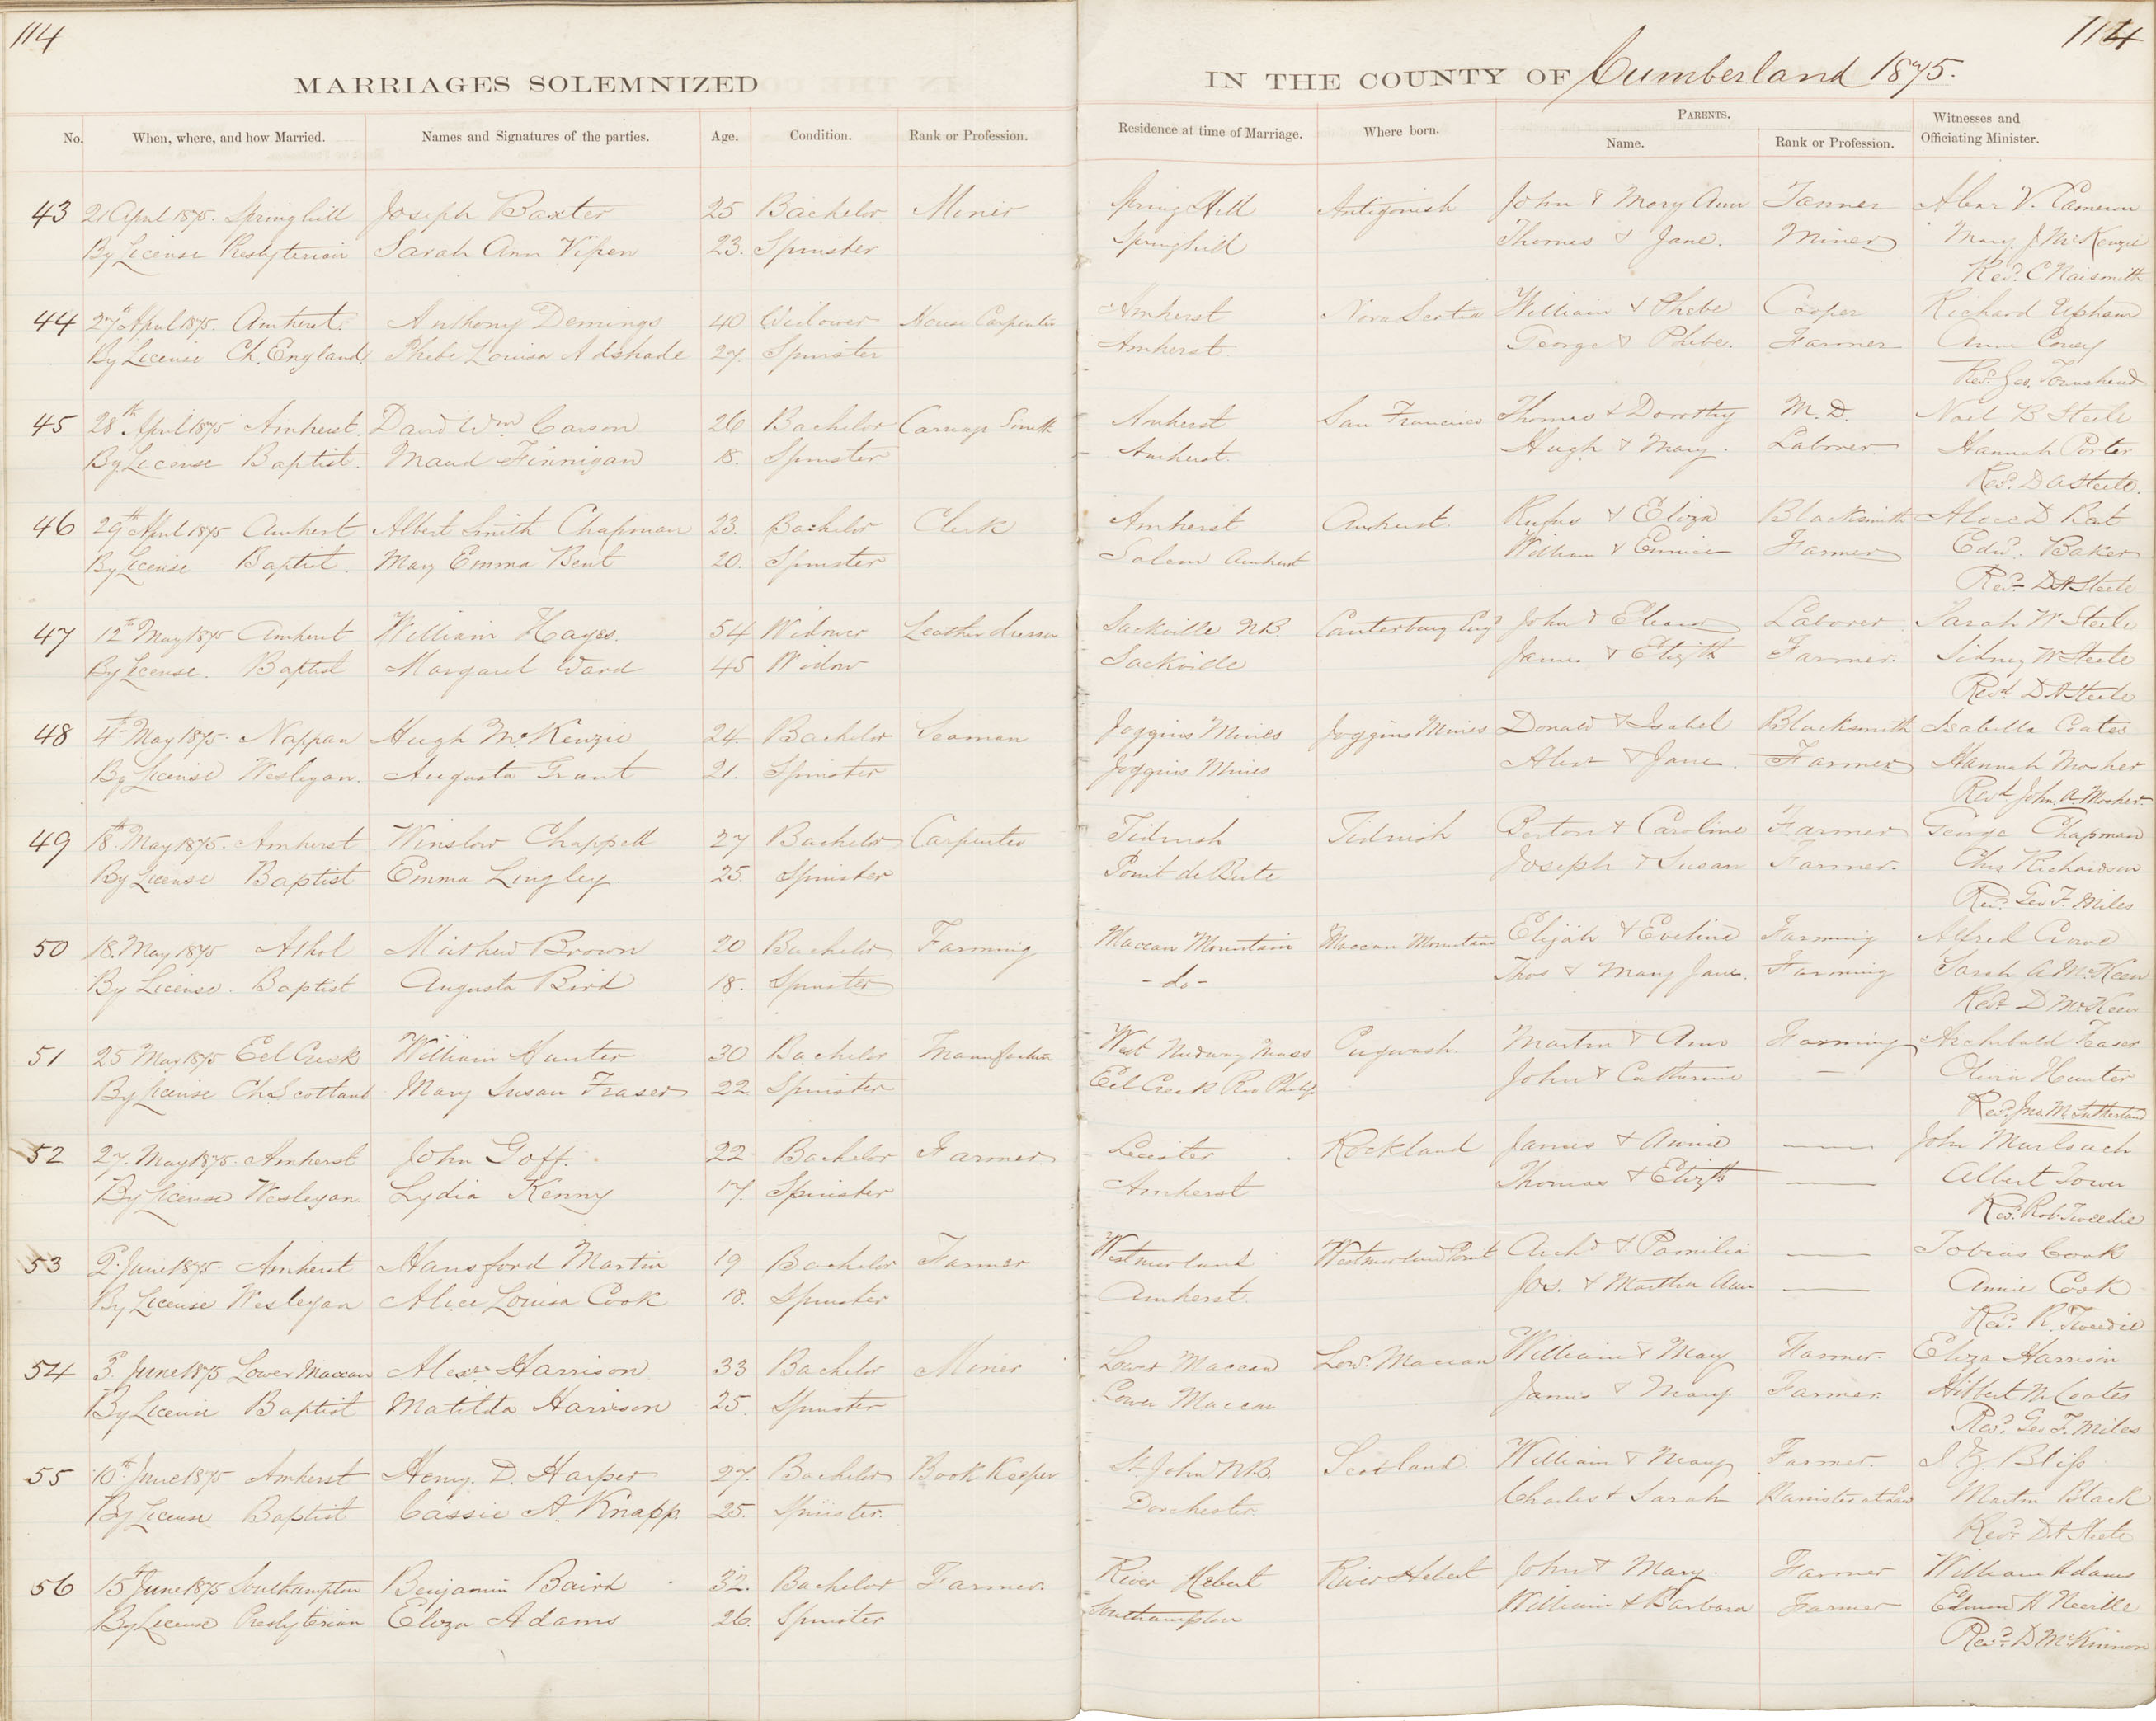 114
114
MARRIAGES SOLEMNIZED IN THE COUNTY OF Cumberland 1875.
No. When, where, and how Married. Names and Signatures of the parties. Age. Condition. Rank or Profession. Residence at time of Marriage. Where born. PARENTS. Name. Rank or Profession. Witnesses and Officiating Minister.
43 21 April 1875. Springhill Joseph Baxter 25 Bachelor Miner Spring Hill Antigonish John & Mary Ann Tanner V. Cameron
By License Presbyterian Sarah Ann Vipen 23. Spinster Springhill Thomas & Jane. Miner Mary J. McKenzie
Revd. C Naismith
44 27th April 1875. Amherst. Anthony Demings 40 Widower House Carpenter Amherst Nova Scotia William & Phebe Cooper Richard Upham
By License Ch. England. Phebe Louisa Adshade 27. Spinster Amherst George & Phebe. Farmer Anne
Revd. Geo. Townshend
45 28th April 1875 Amherst. David Wm. Carson 26 Bachelor Carriage Smith Amherst San Francisco Thomas & Dorothy M.D. Nael B Steele
By License Baptist. Maud Finnigan 18. Spinster Amherst. Hugh & Mary. Laborer Hannah Porter
Revd. D A Steele.
46 29th April 1875 Amherst Albert Smith Chapman 23. Bachelor Clerk Amherst Amherst. Rufus & Eliza Blacksmith Alice D Bent
By License Baptist. Mary Emma Bent 20. Spinster Salem Amherst William & Eunice Farmer Edwd. Baker
Revd. D A Steele
47 12th May 1875 Amherst William Hayes. 54 Widower Leather dresser Sackville N.B. Canterbury Engd John & Eleanor Laborer Sarah W Steele
By License. Baptist Margaret Ward 45 Widow Sackville James & Elizth Farmer. Sidney W Steele
Revd. D A Steele
48 4th May 1875. Nappan Hugh McKenzie 24. Bachelor Seaman Joggins Mines Joggins Mines Donald & Isabel Blacksmith Isabella Coates
By License Wesleyan. Augusta Grant 21. Spinster Joggins Mines Alexr & Jane. Farmer Hannah Mosher
Revd. John. A. Mosher.
49 18th May 1875. Amherst Winslow Chappell 27 Bachelor Carpenter Tidnish Tidnish Berton & Caroline Farmer George Chapman
By License Baptist Emma Lingley 25. Spinster Point de Bute Joseph & Susan Farmer. Chas Richardson
Revd. Geo F. Miles
50 18. May 1875 Athol Mathew Brown 20 Bachelor Farming Maccan Mountain Maccan Mountain Elijah & Evelina Farming Alfred Crowe
By License. Baptist Augusta Bird 18. Spinster - do - Thos & Mary Jane. Farming Sarah A McKeen
Revd D McKeen
51 25 May 1875 Eel Creek William Hunter 30 Bachelor West Medway Mass Pugwash. Martin & Ann Farming Archibald Fraser
By License Ch. Scotland Mary Susan Fraser 22 Spinster Eel Creek Riv Philip John & Catherine — Olivia Hunter
Revd. Jno M. Sutherland
52 27. May 1875. Amherst John Goff. 22 Bachelor Farmer Leicester Rockland James & Annie — John
By License Wesleyan. Lydia Kenny 17. Spinster Amherst Thomas & Elizth — Albert Tower
Revd. Rob. Tweedie
53 2d. June 1875. Amherst Hansford Martin 19 Bachelor Farmer Westmorland Westmorland Point Archd & Pamilia — Tobias Cook
By License Wesleyan Alice Louisa Cook 18. Spinster Amherst. Jos. & Martha Ann — Annie Cook
Revd. R. Tweedie
54 3d. June 1875 Lower Maccan Alexr Harrison 33 Bachelor Miner Lower Maccan Lowr. Maccan William & Mary Farmer. Eliza Harrison
By License Baptist Matilda Harrison 25 Spinster Lower Maccan James & Mary Farmer. Hibbert N. Coates
Revd. Geo F. Miles
55 10th June 1875 Amherst Henry. D. Harper 27. Bachelor Book Keeper St. John N.B. Scotland. William & Mary Farmer. Bliss
By License Baptist Cassie A. Knapp. 25. Spinster. Dorchester. Charles & Sarah Barrister at Law Martin Black
Revd. D A Steele
56 15th June 1875 Southampton Benjamin Baird 32. Bachelor Farmer. River Hebert River Hebert John & Mary. Farmer William Adams
By License Presbyterian Eliza Adams 26. Spinster Southampton William & Barbara Farmer Edmond H Neville
Revd. D McKinnon